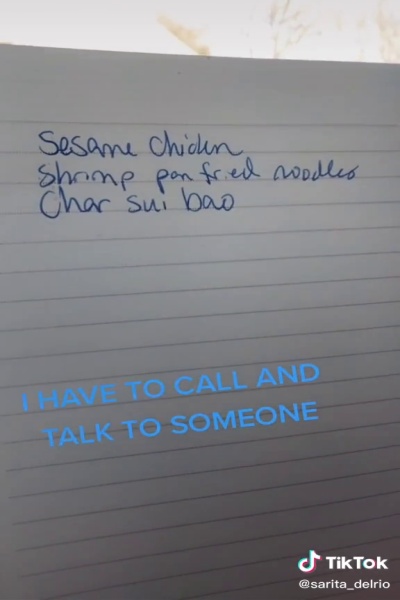 Sesame Chicken
Shrimp pan fried noodles
Char sui bao
I HAVE TO CALL AND
TALK TO SOMEONE
TikTok
@sarita_delrio